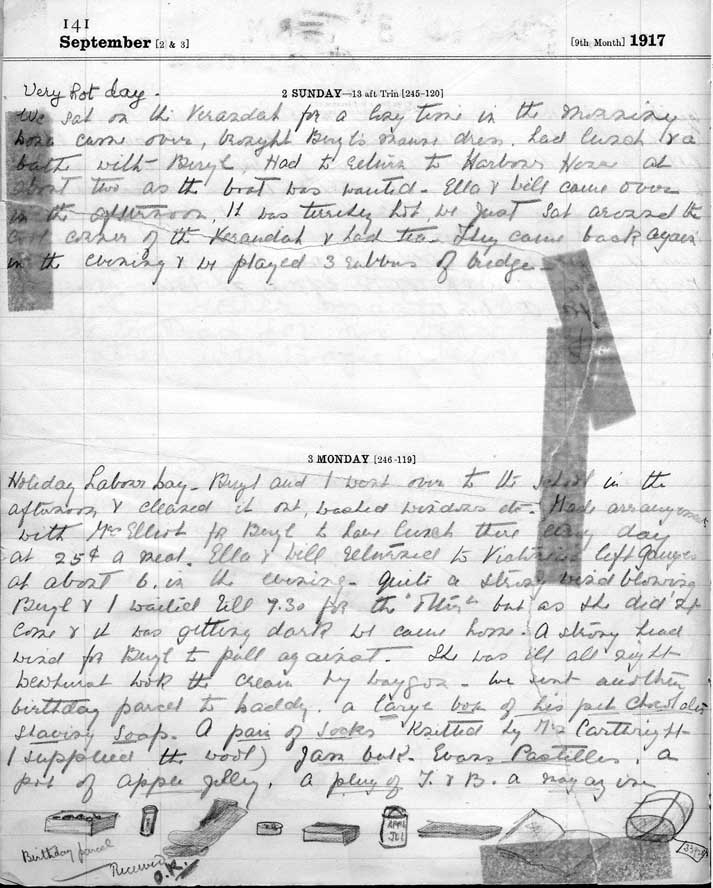 141
September [2 & 3] [9th Month] 1917
2 SUNDAY—13 aft Trin [245-120]
Very hot day.
We sat on the Verandah for a long time in the morning
came over, brought Beryl's mauve dress. had lunch & a
bathe with Beryl. Had to return to Harbour House at
about two as the boat was wanted. Ella & Will came over
in the afternoon. It was terribly hot, we just sat around the
cool corner of the Verandah & had tea. They came back again
in the evening & we played 3 rubbers of bridge.
3 MONDAY [246-119]
Holiday Labour Day. Beryl and I went over to the school in the
afternoon & cleaned it out, washed windows etc. Made arrangements
with Mrs Elliot for Beryl to have lunch there every day
at 25¢ a meal. Ella & Will returned to Victoria left Ganges
at about 6. in the evening. Quite a strong wind blowing
Beryl & I waited till 7.30 for the "Otter" but as she did'nt
come & it was getting dark we came home. A strong head
wind for Beryl to pull against. She was ill all night
took the cream by waggon. We sent another
birthday parcel to Daddy. a large box of his pet Chocolates
Shaving Soap. A pair of Socks Knitted by Mrs Cartwright
I supplied the wool) Evans Pastilles. a
pot of apple jelly. a plug of T. & B. a magazine
APPL
JEL
Birthday parcel
Received
O.K.